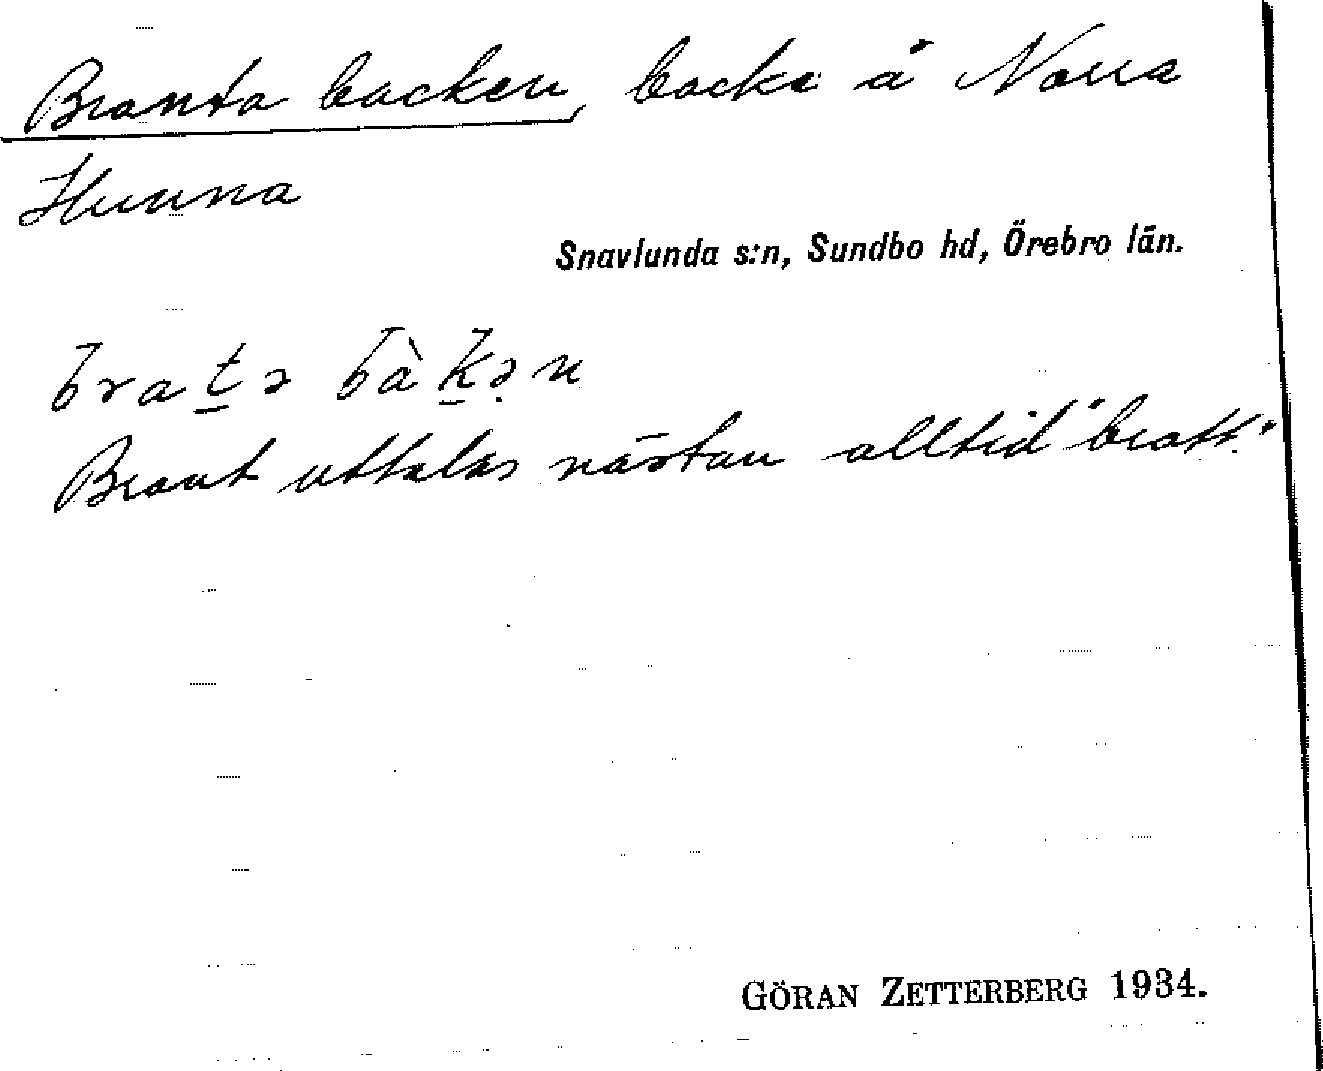 Branta backen, backe å Norra
Hunna
Snavlunda s:n, Sundbo hd, Örebro län.
bratə bàkən
Brant uttalas nästan alltid "bratt."
GÖRAN ZETTERBERG 1934.